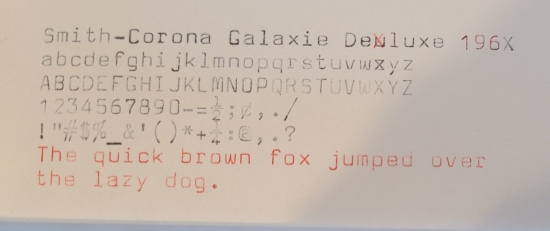 Smith-Corona Galaxie Deluxe 196X
abcdefghijklmnopqrstuvwxyz
ABCDEFGHIJKLMNOPQRSTUVWXYZ
1234567890-=½;¢,./
!"#$%_&'()*+¼:@,.?
The quick brown fox jumped over
the lazy dog.